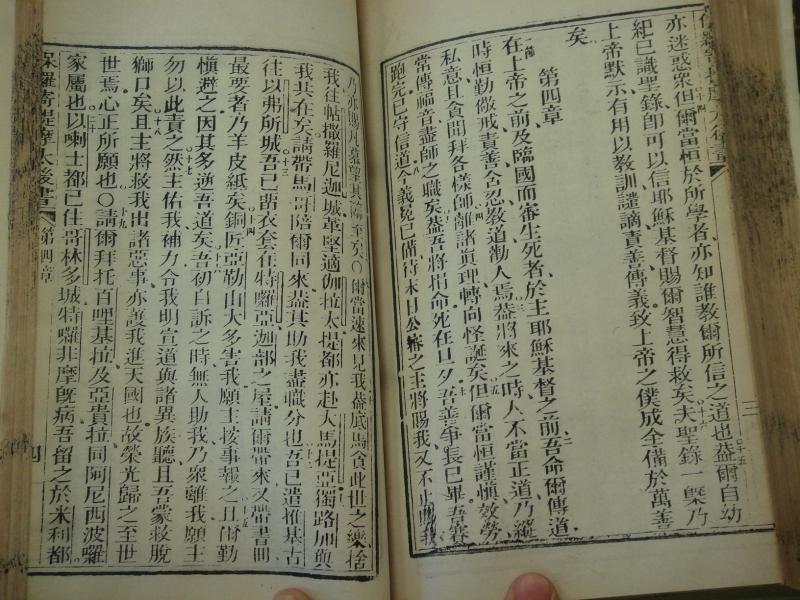 亦迷惑眾但爾當恒於所學者亦知誰教爾所信之道也葢爾自幼
紀已識聖錄卽可以信耶穌基督賜爾智慧得救矣夫聖錄一槩乃
上帝默示有用以教訓譴謫責善傳義致上帝之僕成全備於萬善
矣
第四章
在上帝之前及臨國而審生死者於主耶穌基督之前吾命爾傳道
時恒勤儆戒責善含忍教道勸人焉葢將來之時人不當正道乃縱
私意且貪聞拜各樣師離諸眞理轉向怪誕矣但爾當恒謹愼效勞
常傳福音盡師之職矣葢吾將捐命死在旦夕吾善爭長已畢吾賽
跑完已守信道今義冕已備待末日公審之主將賜我又不止賜我
乃亦賜凡慕望其臨至矣○爾當速來見我葢底馬貪此世之樂捨
我往帖撒羅尼迦城革堅適伽拉太提都亦赴大馬提亞獨路加與
我共在矣請帶馬哥陪爾同來葢其助我盡職分也吾已遣推基古
往以弗所城吾已留衣套在特囉亞迦部之屋請爾帶來又帶書冊
最要者乃羊皮紙矣銅匠亞勒山大多害我願主按事報之且爾勤
愼避之因其多逆吾道矣吾初自訴之時無人助我乃眾離我願主
勿以此責之然主佑我補力令我明宣道與諸異族聽且吾蒙救脫
獅口矣且主將救我出諸惡事亦護我進天國也故榮光歸之至世
世焉心正所願也○請爾拜托百哩基拉及亞貴拉同阿尼西波囉
家屬也以喇士都已住哥林多城特囉非摩旣病吾留之於米利都
保羅寄提摩太後書
第四章